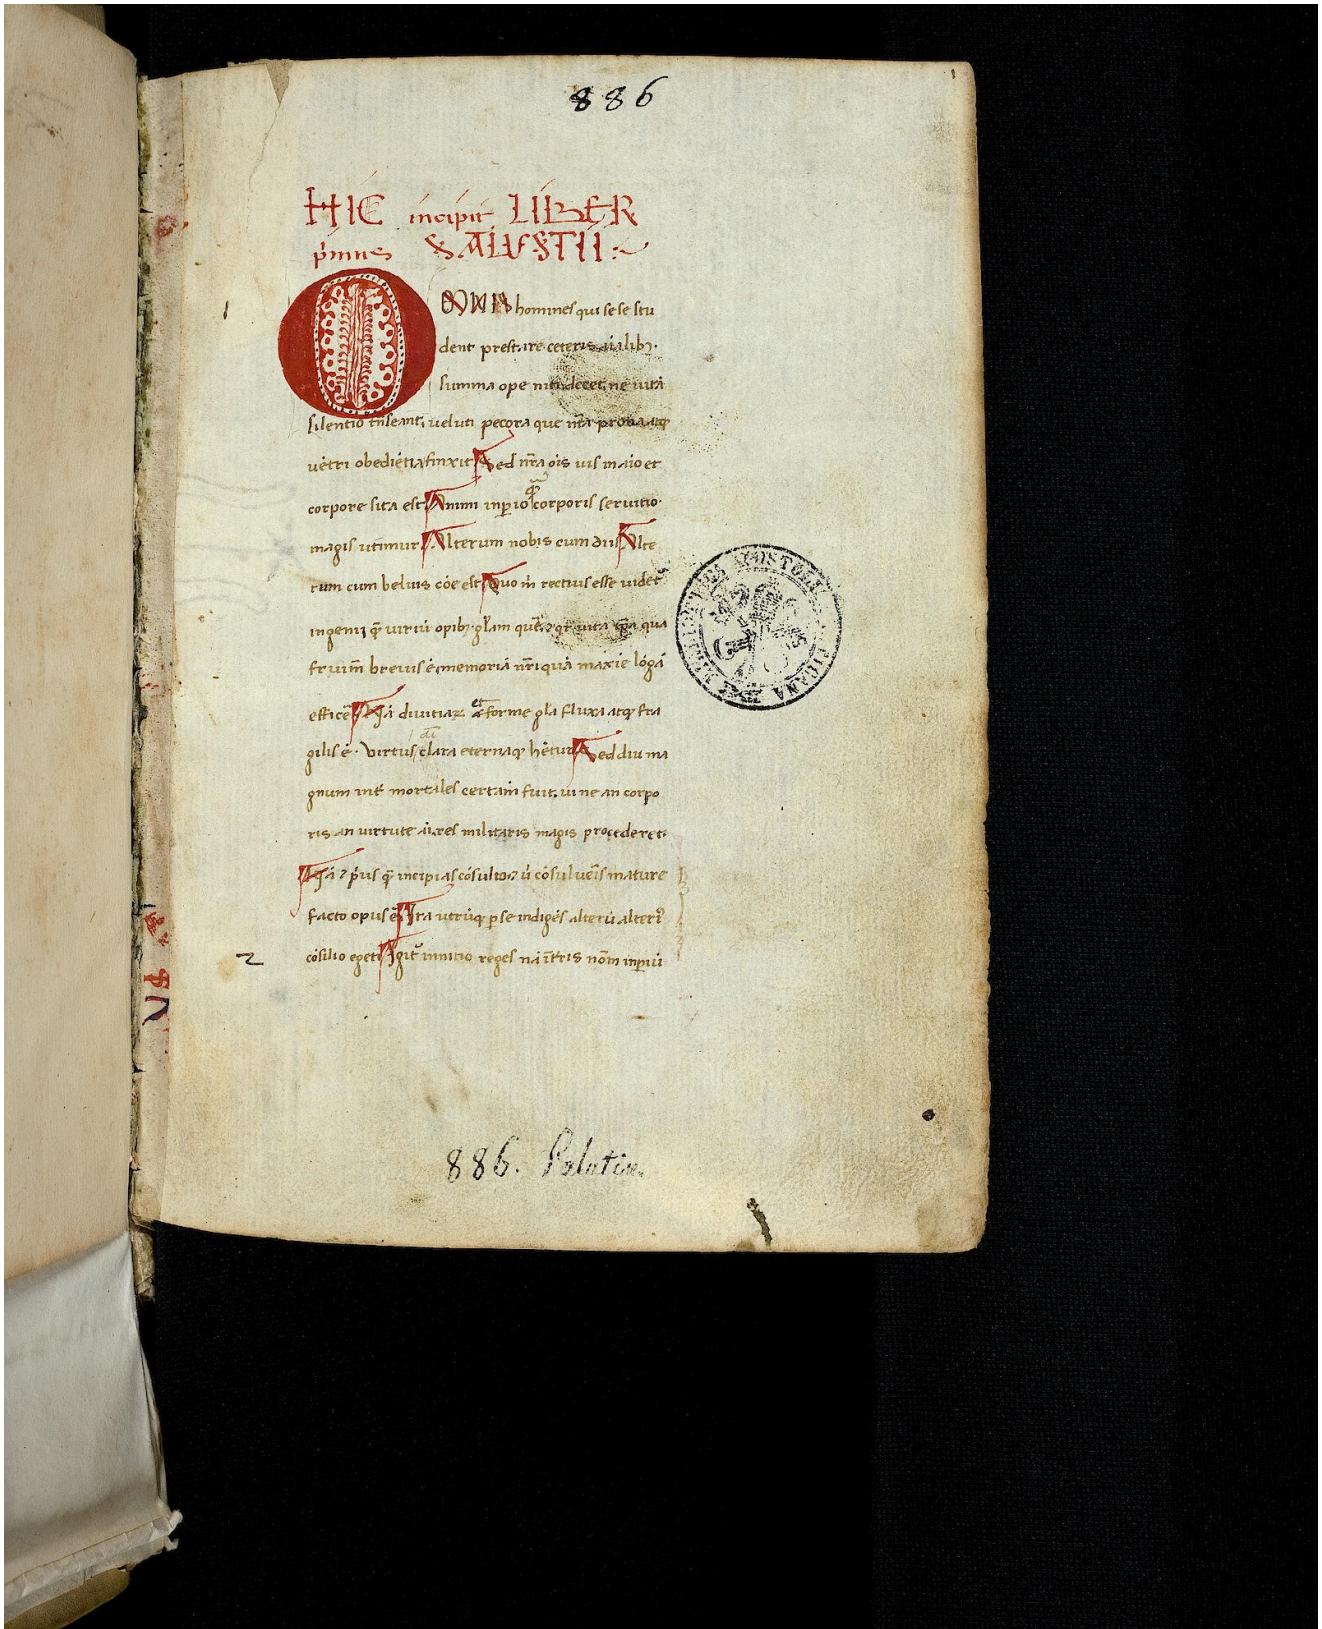 886
HIC incipit LIBER
p̄mus SALUSTII :~
1
OMNIS homines qui sese stu
dent prestare ceteris aīalibꝫ·
summa ope niti decet, ne uitā
silentio trāseant, ueluti pecora que nr̄a prona atqꝫ
uētri obediētia finxit Sed nr̄a oīs uis īaīo et
corpore sita est Animi inꝑio corporis seruitio·
magis utimur Alterum nobis cum diis Alte
rum cum beluis cōe est Quo m̄ rectius esse uidet᷑
ingenij qͣ̄ uiriū opibꝫ gl̄am querꝰ ⁊ qr̄ uita ip̄a qua
fruim᷑ breuis ē, memoriā nr̄i quā maxīe lōgā
efficeꝰ Nā diuitiaꝝ et forme gl̄a fluxa atqꝫ fra
gilis ē· virtus clara eternaqꝫ hētur Sed diu ma
gnum int̄ mortales certam̄ fuit. ui ne an corpo
ris an uirtute aī, res militaris magis procederet·
Nā ⁊ p̄us qͣ̄ incipias cōsulto, ⁊ ū cōsulueīs mature
facto opus ē Ita utrūqꝫ ꝑ se indigēs alterū alteriꝰ
2
cōsilio eget Igit᷑ innitio reges nā ī tr̄is nōm inꝑii
886. Palatin.